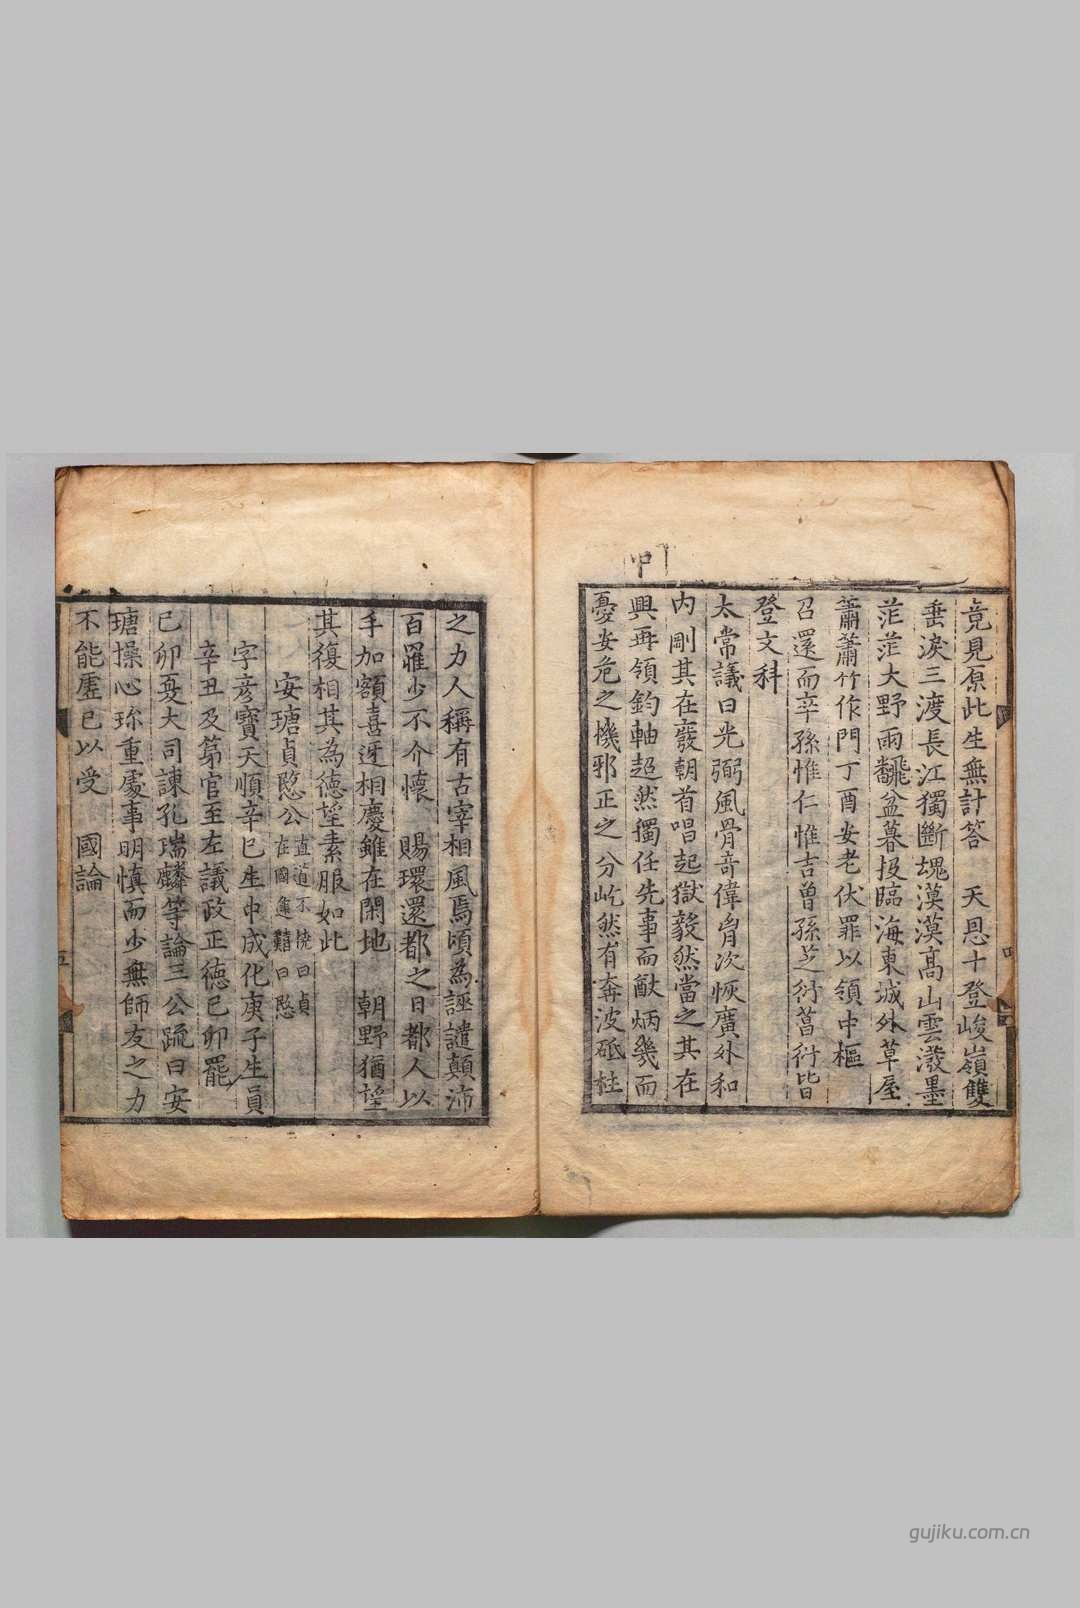 竟見原此生無計答　天恩十登峻嶺雙
垂淚三渡長江獨斷魂漠漠高山雲潑墨
茫茫大野雨飜盆暮投臨海東城外草屋
蕭蕭竹作門丁酉安老伏罪以領中樞
召還而卒孫惟仁惟吉曾孫芝衍菖衍皆
登文科
太常議曰光弼風骨奇偉胷次恢廣外和
內剛其在廢朝首唱起獄毅然當之其在
興再領鈞軸超然獨任先事而猷炳幾而
憂安危之機邪正之分屹然有奔波砥柱
四
之力人稱有古宰相風焉頃為誣讉顛沛
百罹少不介懷　賜環還都之日都人以
手加額喜迓相慶雖在閑地　朝野猶望
其復相其為德望素服如此
安瑭貞愍公直道不撓曰貞在國逢難曰愍
字彦寶天順辛巳生中成化庚子生員
辛丑及第官至左議政正德己卯罷
己卯夏大司諫孔瑞麟等論三公疏曰安
瑭操心珎重處事明慎而少無師友之力
不能虛己以受　國論
五
gujiku.com.cn